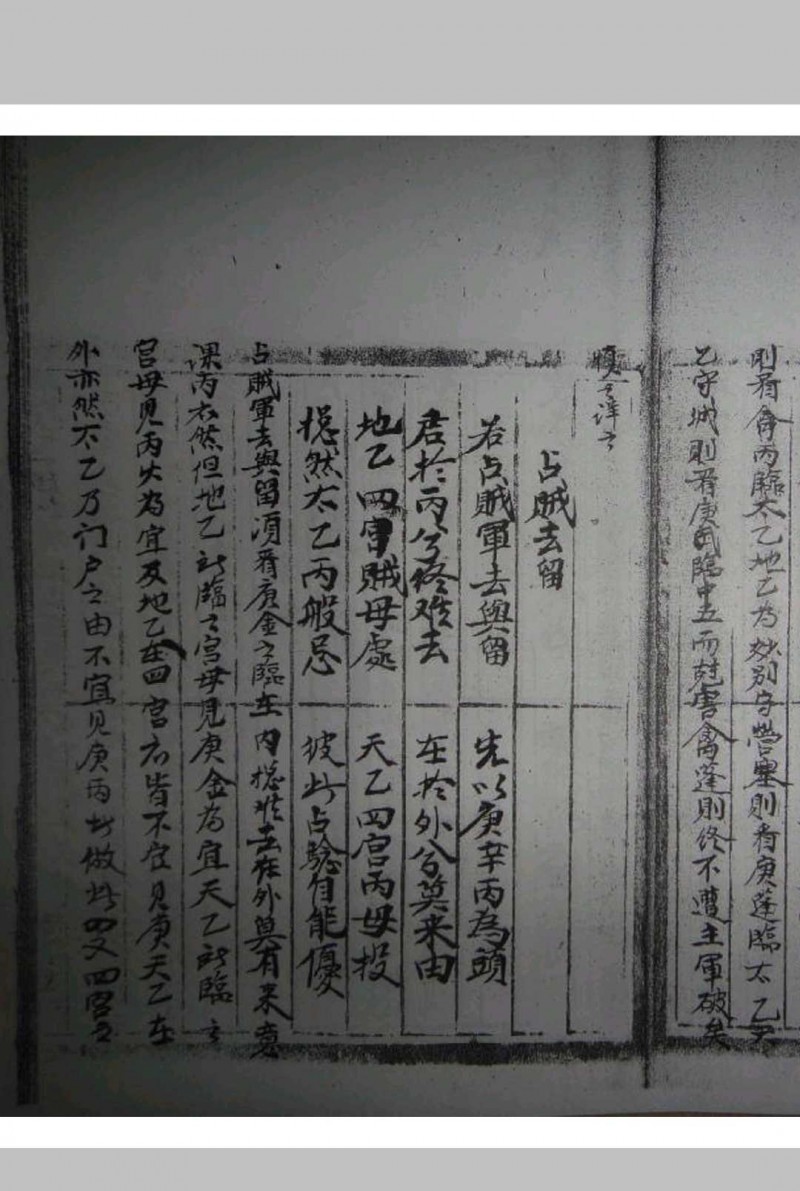 則看奇丙臨太乙地乙為妙別守營塞則看庚蓬臨太乙天
乙守城則看庚武臨中五而尅害禽蓬則終不遭主軍破矣
慎之詳之
占賊去留
若占賊軍去與留 先以庚辛丙為頭
居於丙兮終难去 在於外兮莫来由
地乙四宮賊毋處 天乙四宮丙毋投
摠然太乙丙般忌 彼此占騐自能優
占賊軍去與留湏看庚金之臨在内摠难去在外莫有来意
課丙亦然但地乙所臨之宮毋見庚金為宜天乙所臨之
宮毋見丙火為宜及地乙在四宮亦皆不宜見庚天乙在
外亦然太乙乃门户之由不宜見庚丙此做此四又四宮